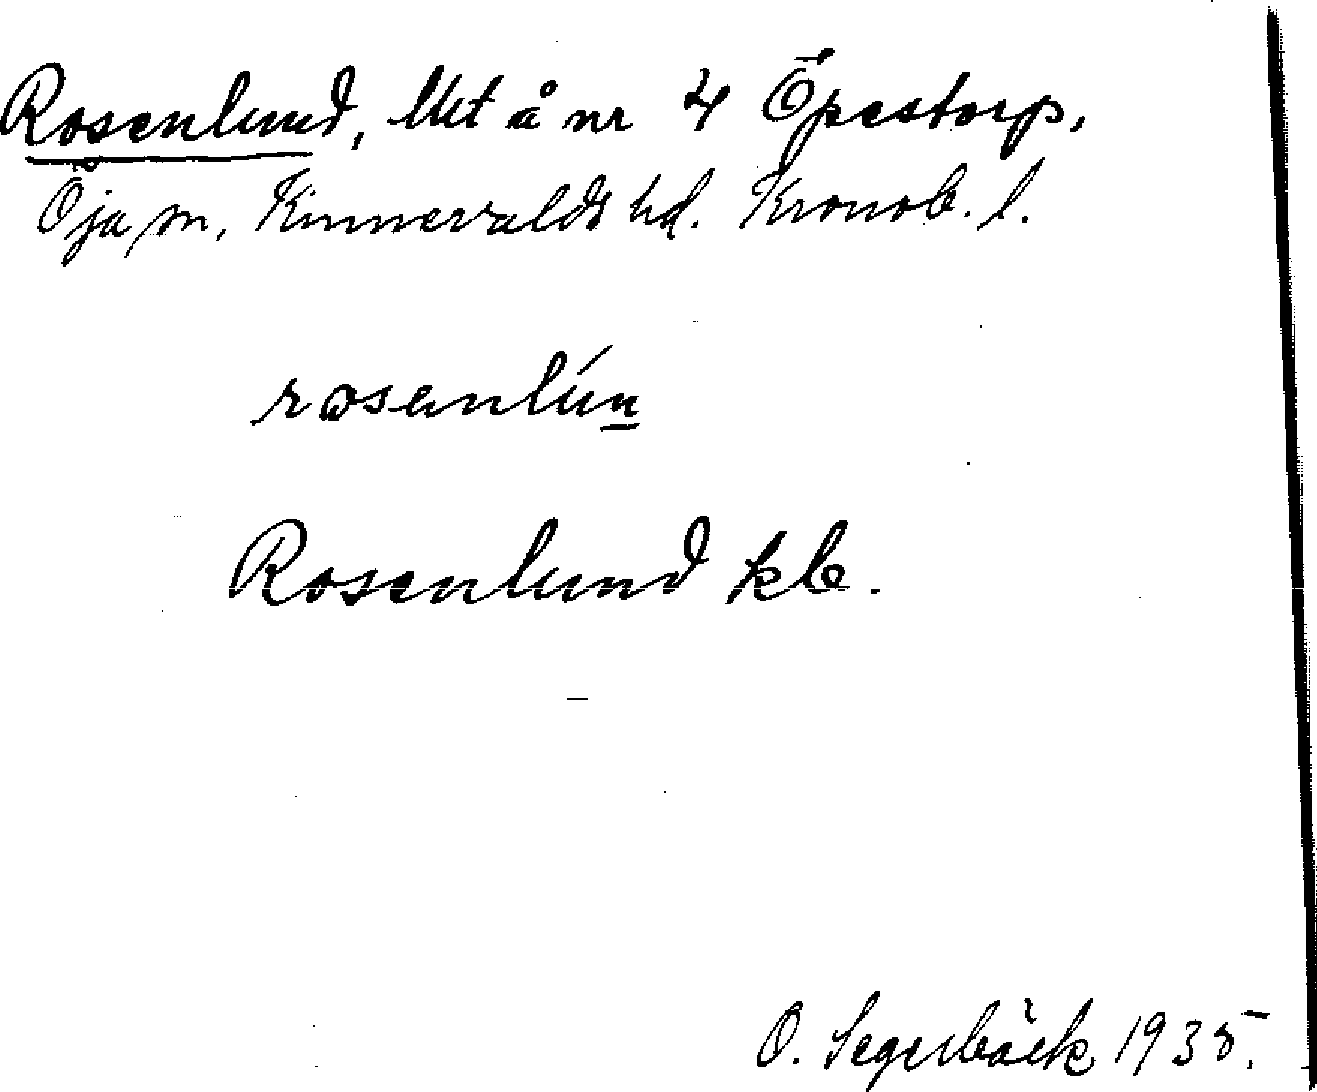 Rosenlund, lht å nr 4 Öpestorp,
Öja sn, Kinnevalds hd. Kronob. l.
rosenlún
Rosenlund kb.
O. Segerbäck 1935.